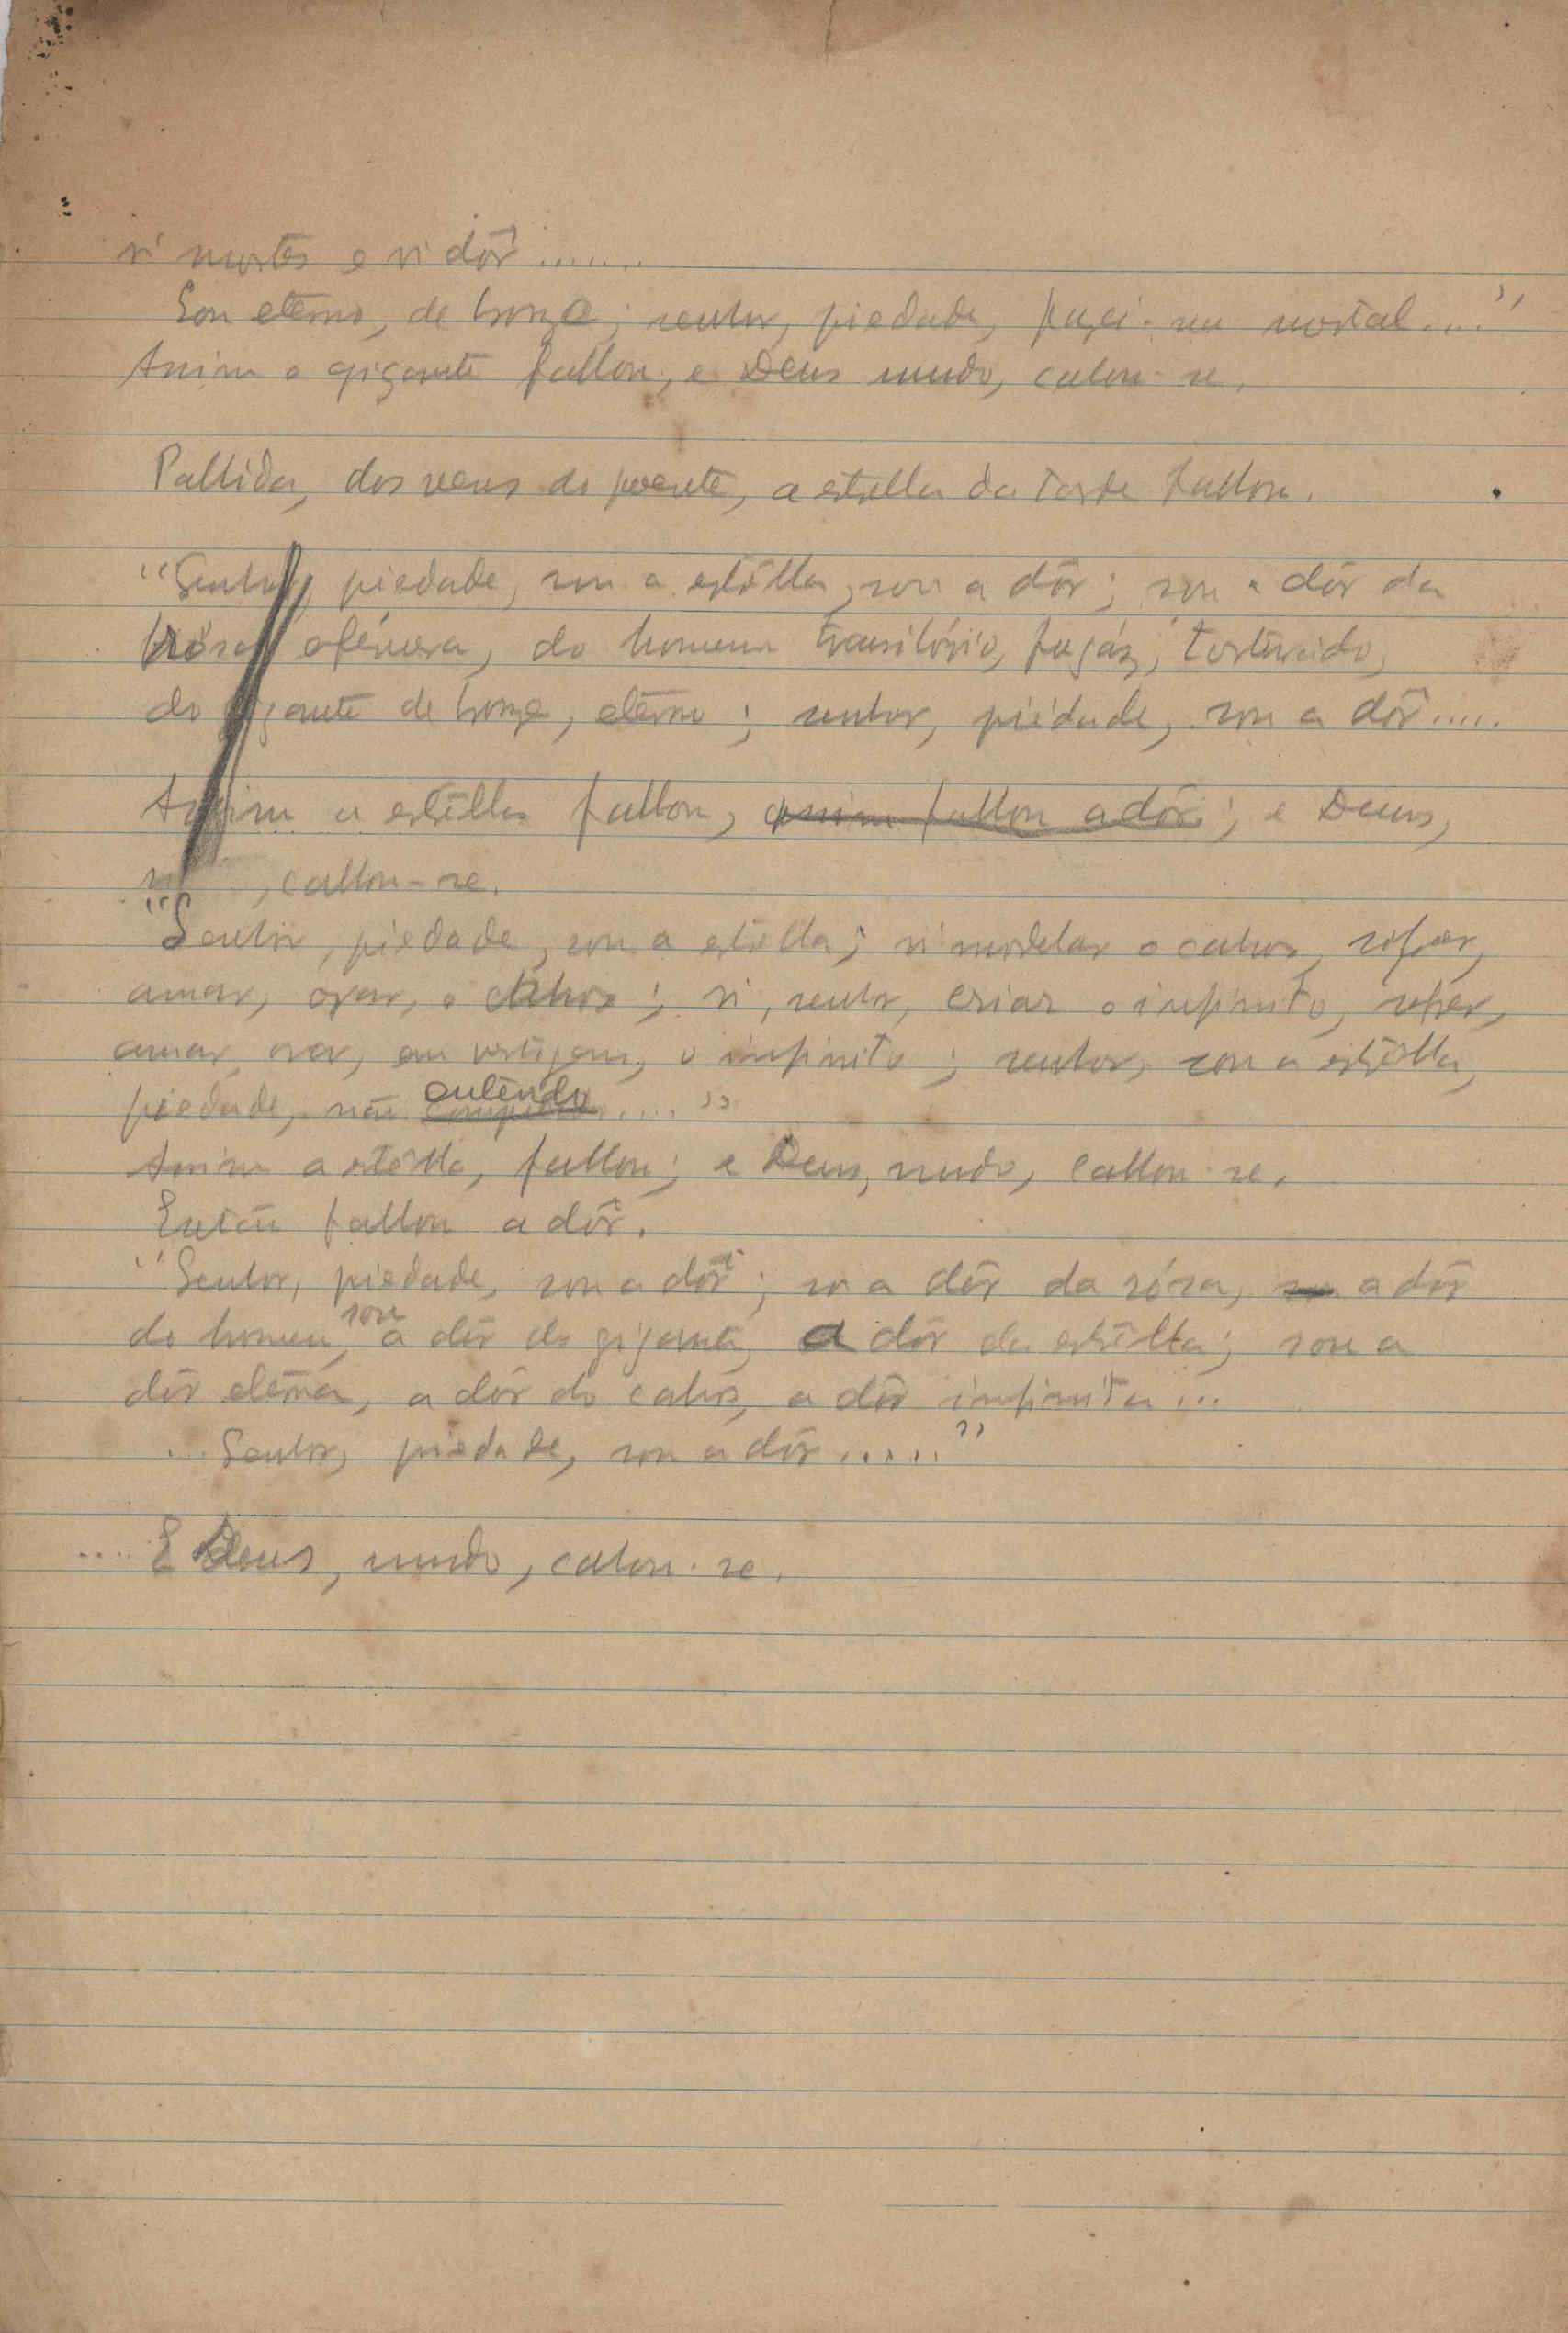 vi mortes e vi dôr.......
Sou eterno, de bronze; senhor, piedade, fazei-me mortal....."
Assim o gigante fallou, e Deus mudo, calou-se.
Pallida, dos veus do poente, a estrella da tarde fallou.
"Senhor, piedade, sou a estrêlla, sou a dôr; sou a dôr da
rósa efémera, do homem transitório, fugáz, torturado,
do gigante de bronze, eterno; senhor, piedade, sou a dôr.....
Assim a estrêlla fallou, assim fallou a dôr; e Deus,
, callou-se.
"Senhor, piedade, sou a estrêlla; vi modelar o cahos, sofrer,
amar, orar, o cahos; vi, senhor, criar o infinito, sofrer,
amar, orar, em vertigem, o infinito; senhor, sou a estrêlla,
entendo
piedade, não ..... "
Assim a estrêlla, fallou; e Deus, mudo, callou-se.
Então fallou a dôr.
"Senhor, piedade, sou a dôr; sou a dôr da rósa, sou a dôr
sou
do homem, a dôr do gigante, a dôr da estrêlla; sou a
dôr eterna, a dôr do cahos, a dôr infinita...
... Senhor, piedade, sou a dôr....."
.... E Deus, mudo, calou-se.